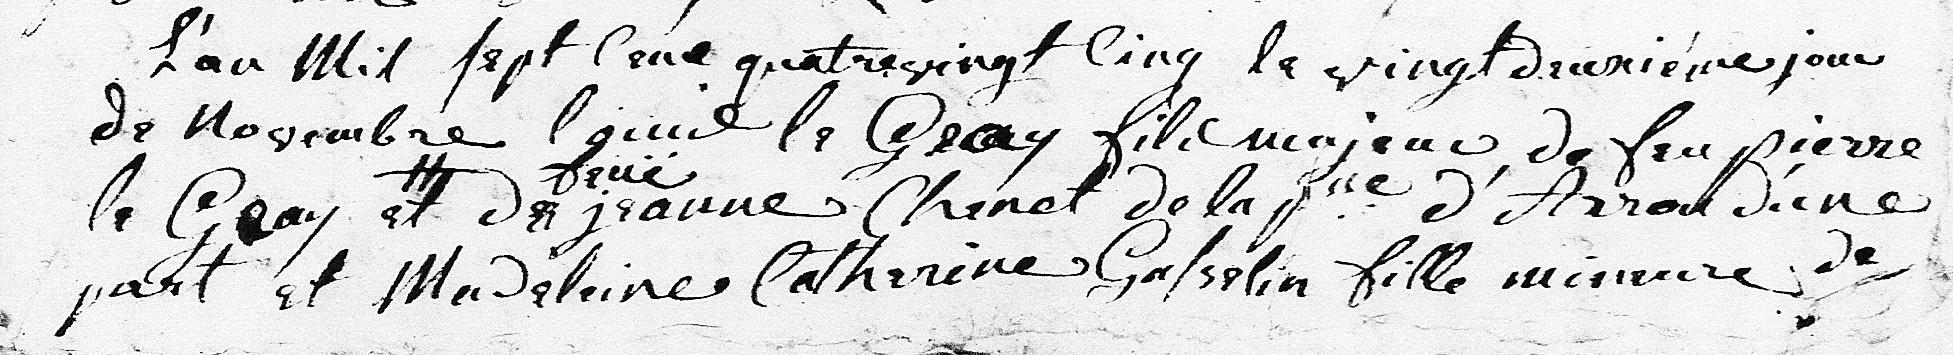 L'an Mil sept Cent quatrevingt Cinq le vingt deuxiéme jour
de Novembre Louis le Geay fils majeur de feu pierre
le Geay et de feüe jeanne Chenel de la psse d'Arrou d'une
part et Madeleine Catherine Gasselin fille mineure de